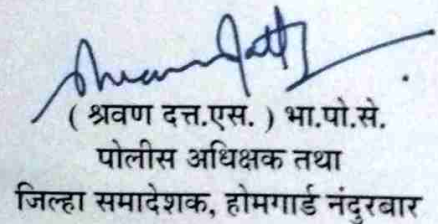 ( श्रवण दत्त.एस. ) भा.पो.से.
पोलीस अधिक्षक तथा
जिल्हा समादेशक, होमगार्ड नंदुरबार